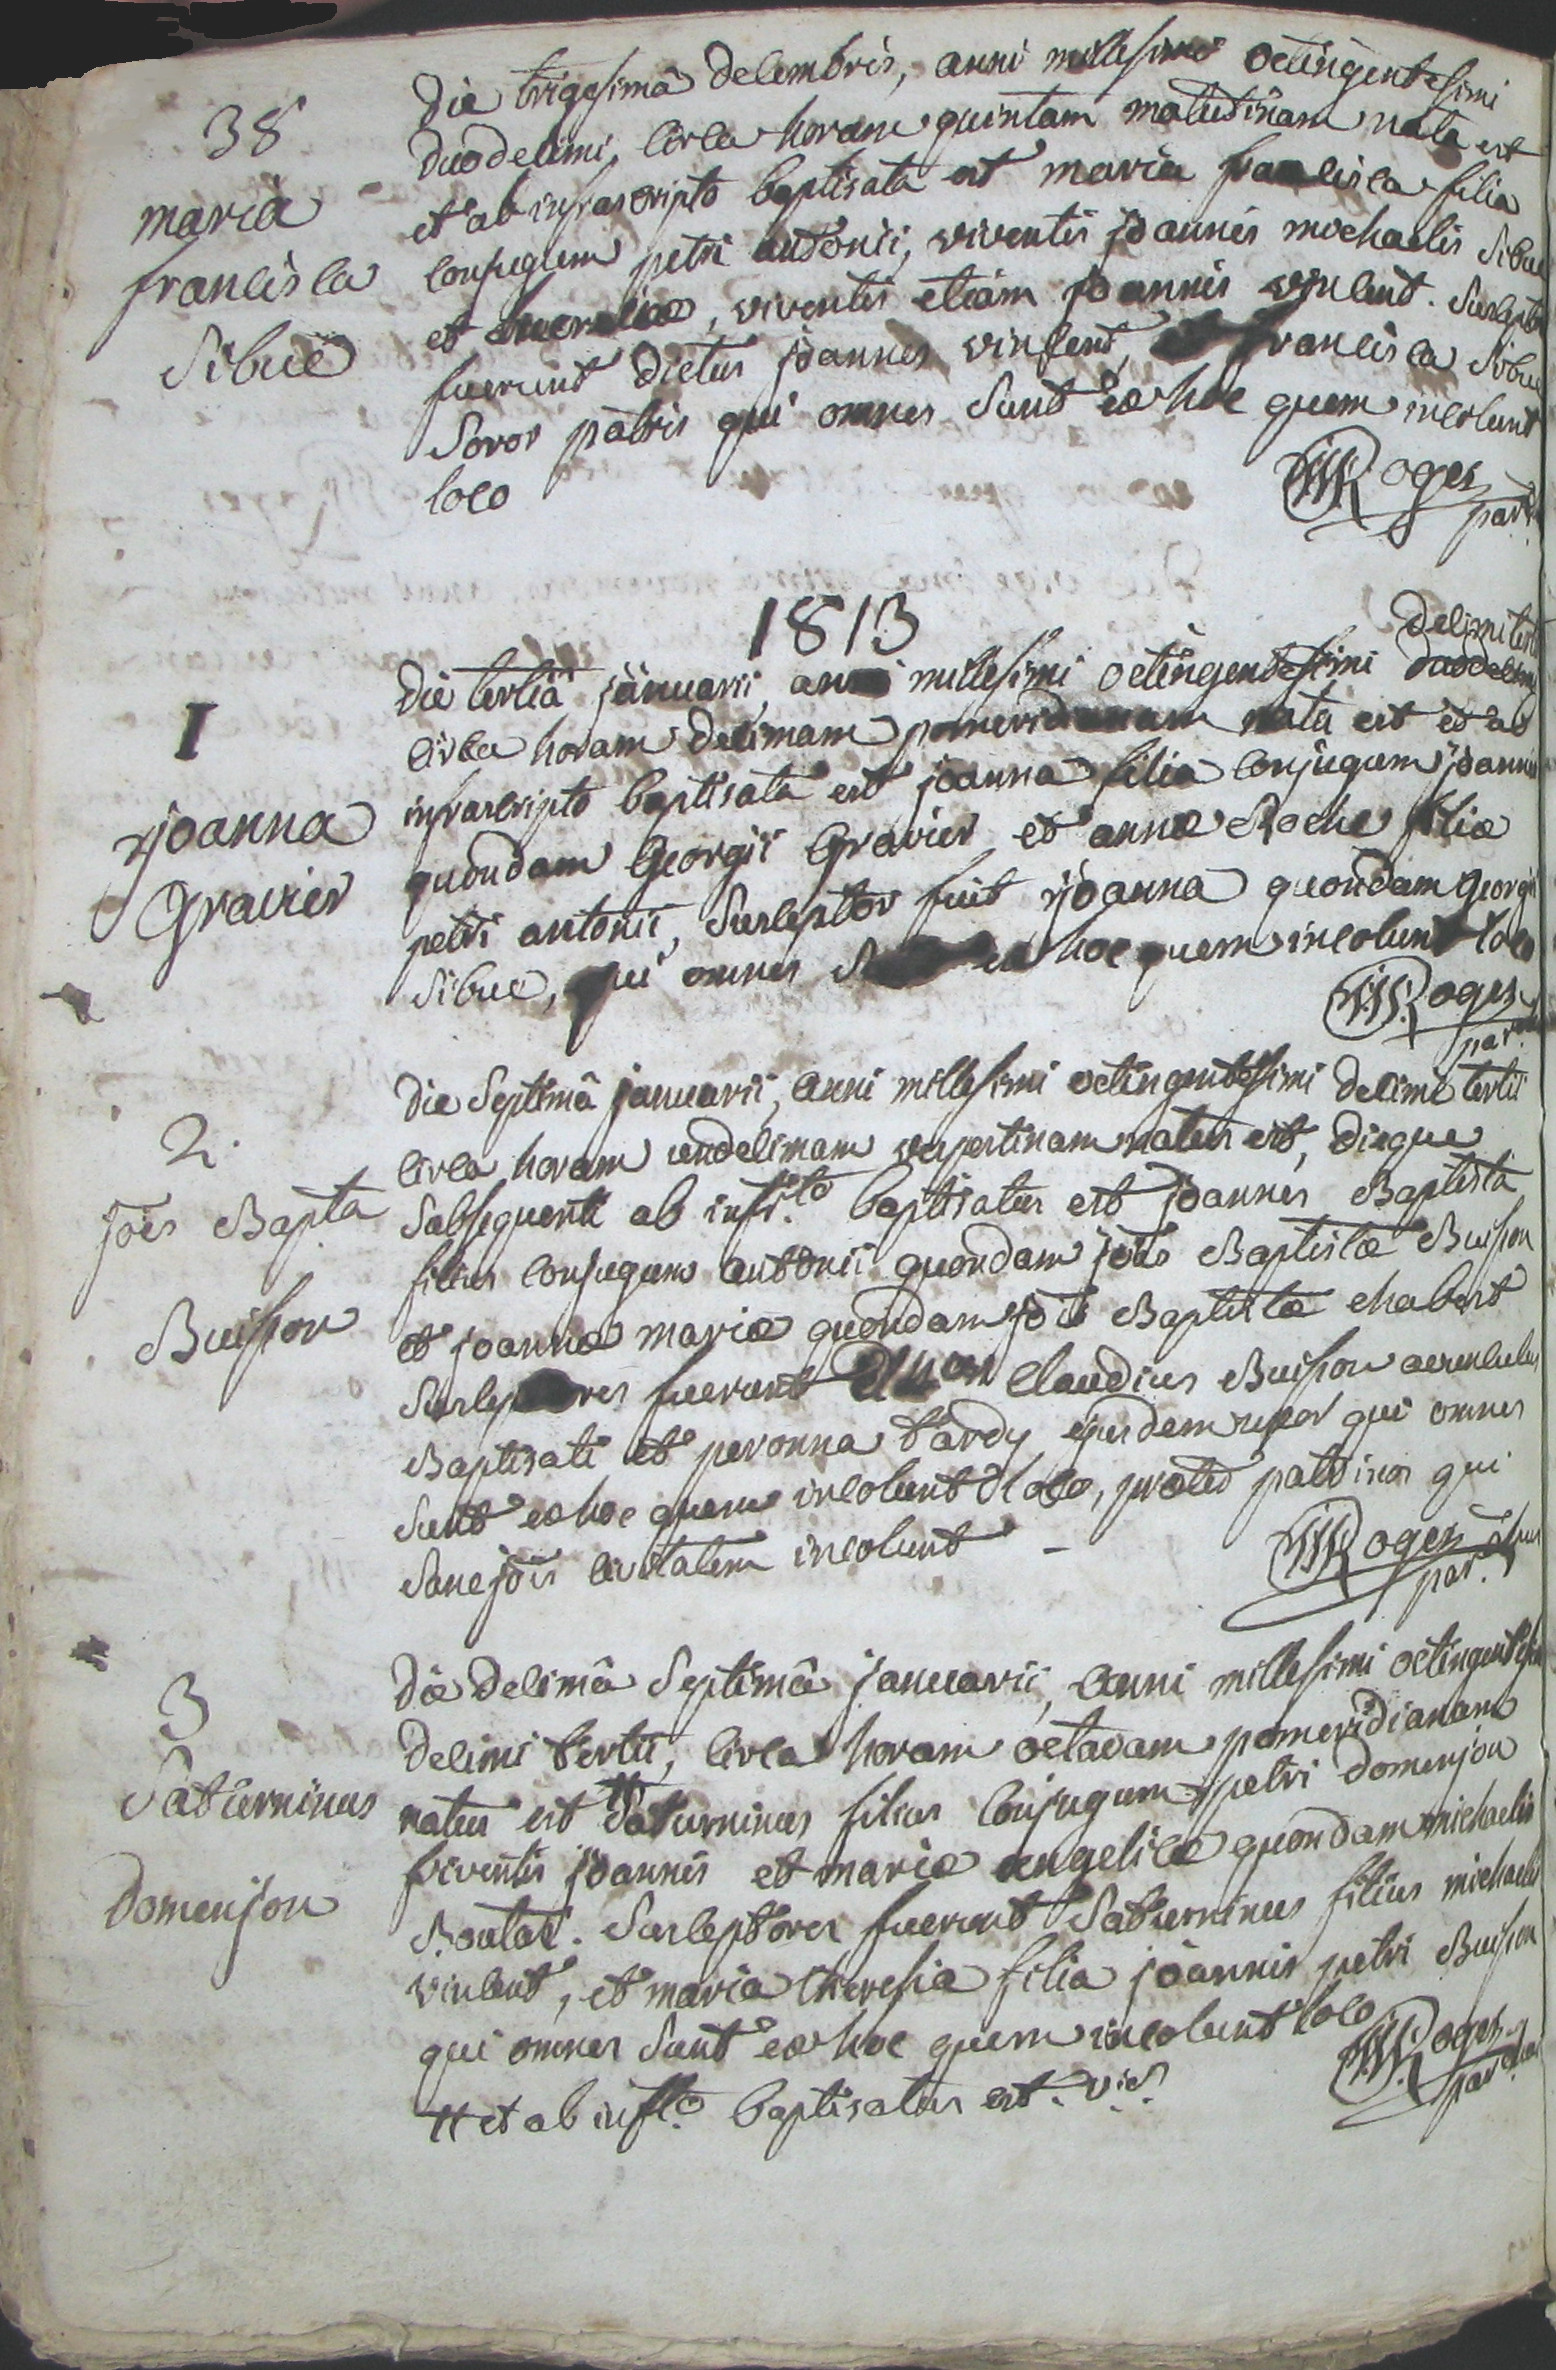 38
maria
francisca
Sibue
Die trigesimâ decembris, anni millesimi octingentesimi
duodecimi, circa horam quintam matutinam nata est
et ab infrascripto baptisata est maria francisca filia
conjugum petri antonii, viventis joannis michaelis Sibue
et, viventis etiam joannis vincent. Suscepto
fuerunt dictus joannes vincent, francisca Sibue
Soror patris qui omnes Sunt ex hoc quem incolunt
loco
Roges
par.
1813
I
joanna
Gravier
decimi terti
Die tertiâ januarii, anni millesimi octingentesimi duodecimi
circa horam decimam pomeridianam nata est et ab
infrascripto baptisata est joanna filia conjugum joannis
quondam Georgii Gravier et annæ Roche filiæ
petri antonii, Susceptor fuit joanna quondam Georgii
Sibue, qui omnes ex hoc quem incolunt loco
Roges
par.
2.
joes Bapta
Buisson
Die Septimâ januarii, anni millesimi octingentesimi decimi tertii
circa horam undecimam vespertinam natus est, dieque
Subsequenti ab infr.to baptisatus est joannes Baptista
filius conjugum antonii quondam jois Baptistæ Buisson
et joannæ mariæ quondam jois Baptistæ chabert
Susceptores fuerunt Claudius Buisson avunculus
Baptisati et peronna tardy ejusdem uxor qui omnes
Sunt ex hoc quem incolunt loco, præter patrinos qui
Sancjois civitatem incolunt -
Roges
par.
3
Saturninus
Domenjon
Die decimâ Septimâ januarii, anni millesimi octingentesimi
decimi tertii, circa horam octavam pomeridianam
natus est # Saturninus filius conjugum petri Domenjon
viventis joannis et mariæ angelicæ quondam michaelis
Boutat. Susceptores fuerunt Saturninus filius michaelis
vincent, et maria theresia filia joannis petri Buisson
qui omnes Sunt ex hoc quem incolunt loco
# et ab inf.to baptisatus est. v.s.
Roges
par.